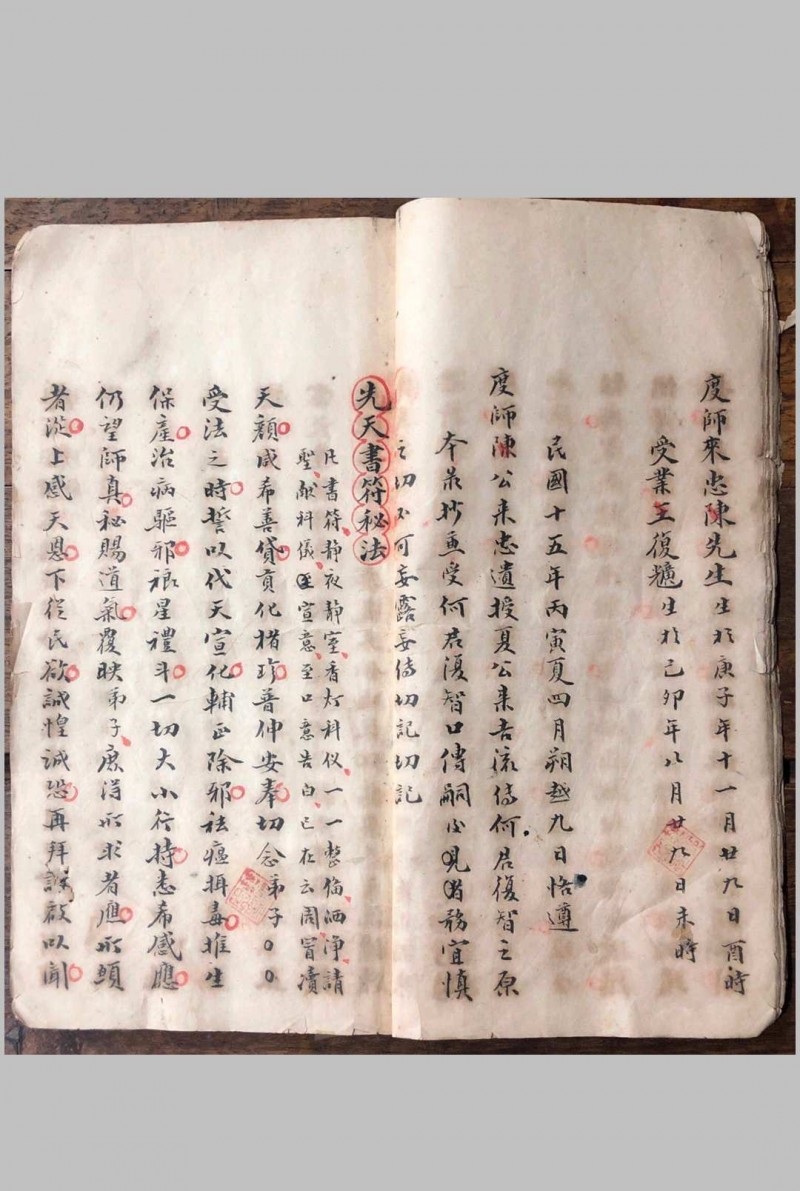 度師來忠陳先生生於庚子年十一月廿九日酉時
受業王復 生於己卯年八月廿九日未時
民國十五年丙寅夏四月朔越九日恪遵
度師陳公来忠遺授夏公来吉流傳何君復智之原
本录抄重受何君復智口傳嗣後見者務宜慎
之切不可妄露妄傳切記切記
先天書符秘法
凡書符静夜静室香灯科仪一一整偹洒净請
聖献科儀 宣意至口意告白已在云周冒瀆
天顔咸希善貸 化楷珍普仲安奉切念弟子〇〇
受法之時誓以代天宣化輔正除邪祛瘟摄毒推生
保產治病驅邪禳星禮斗一切大小行持志希感應
仍望師真秘賜道氣覆映弟子庶得所求者應所願
者從上感天恩下從民欲誠惶誠恐再拜謹啟以聞